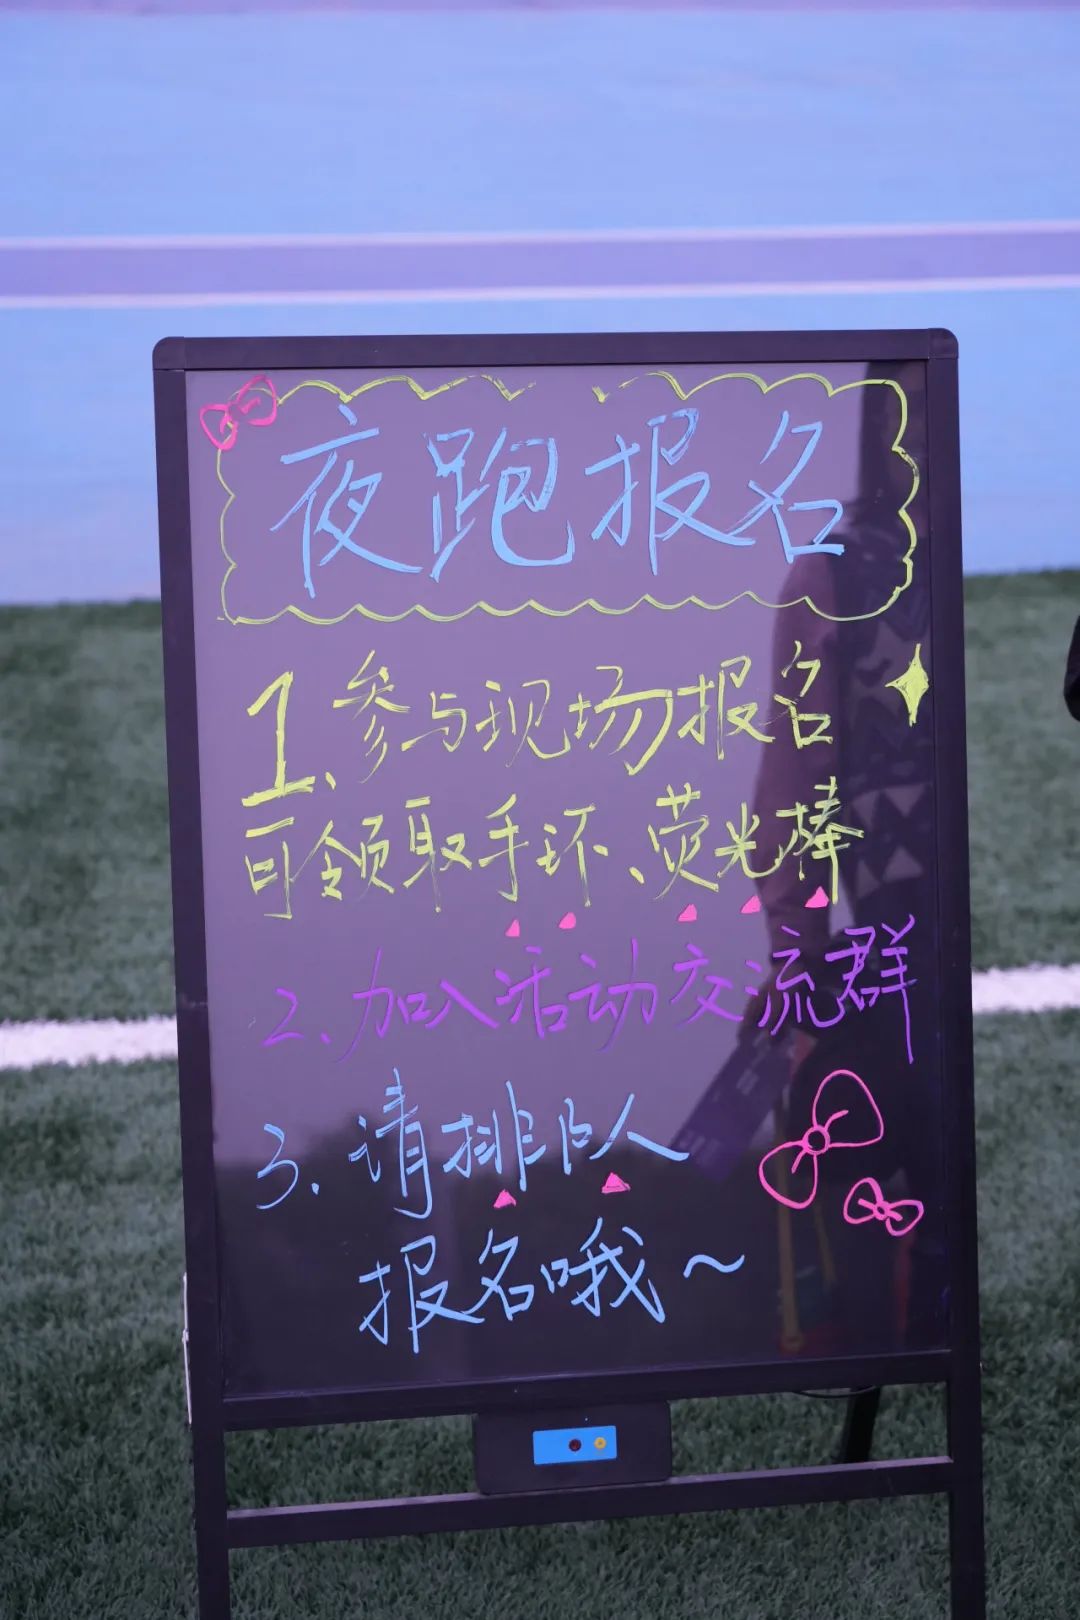 夜跑报名
1、参与现场报名
可领取手环、荧光棒
2、加入活动交流群
3、请排队
报名哦~